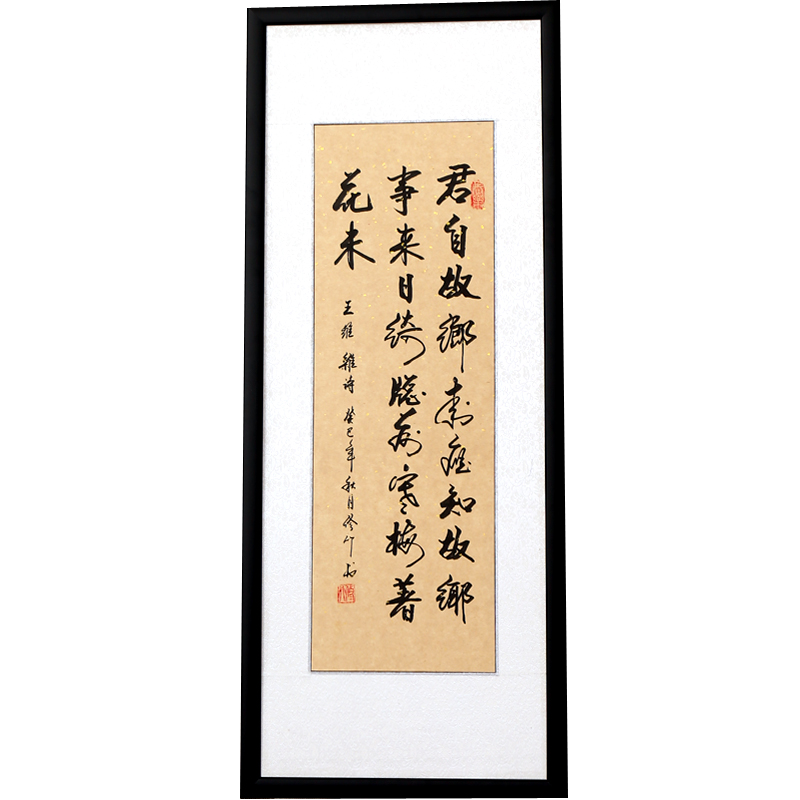 君自故鄉來應知故鄉
事来日綺牕前寒梅著
花未
王維雜诗癸巳年秋月修竹书